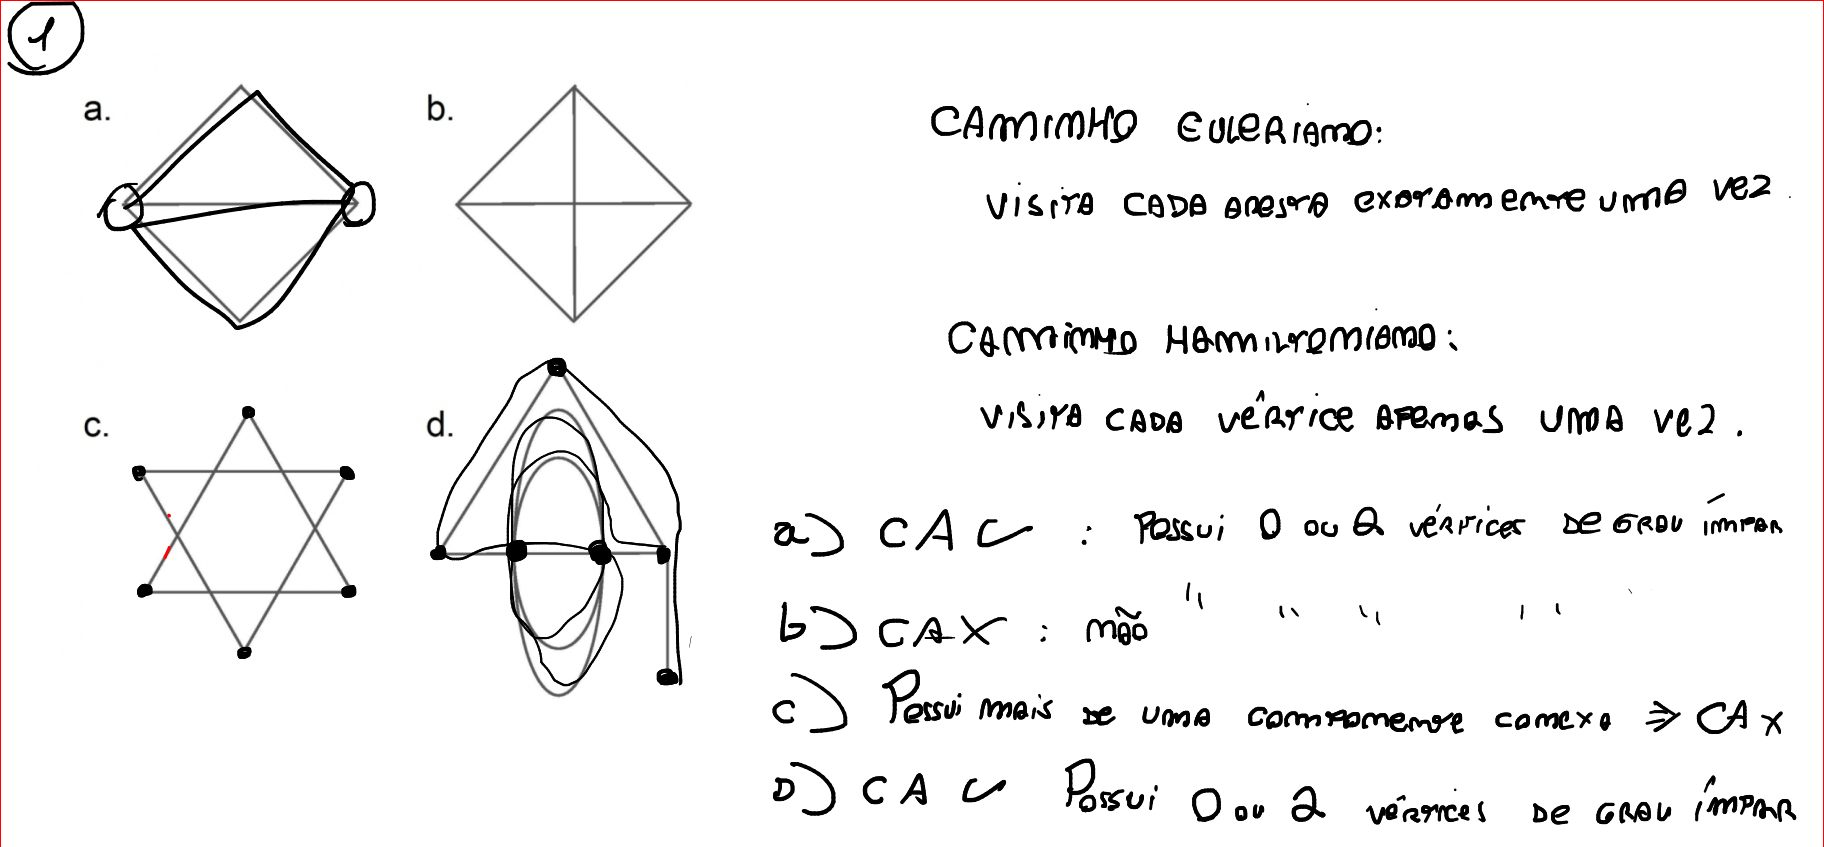 1
a.
b.
CAMINHO EULERIANO:
VISITA CADA ARESTA EXATAMENTE UMA VEZ.
CAMINHO HAMILTONIANO:
VISITA CADA VÉRTICE APENAS UMA VEZ.
c.
d.
a) CA ✓ : POSSUI 0 OU 2 VÉRTICES DE GRAU ÍMPAR
b) CA X : NÃO " " " " 
c) POSSUI MAIS DE UMA COMPONENTE CONEXA ⇒ CA X
D) CA ✓ POSSUI 0 OU 2 VÉRTICES DE GRAU ÍMPAR